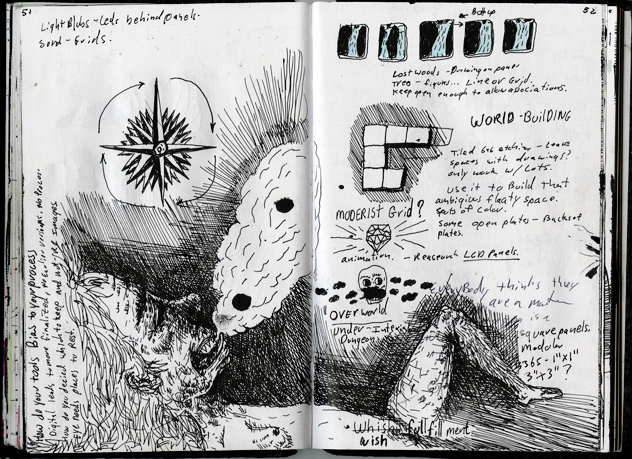 51
Light Blubs - Leds behind panels.
Sord - Grids.
How do your tools Bias to your process
Digital leads to more finalized, no earlier versions. no tracer
How do you decided which to keep and not use images
Eye needs places to Rest.
52
Lost woods - Drawing on paper
Tree - figure... Linear Grid.
Keep open enough to allow associations.
WORLD-BUILDING
Tiled 6x6 etching - Leave
spaces with drawings?
only work w/ Lots.
use it to Build that
ambigious floaty space.
spots of color.
some open plates - Backs of
plates.
MODERIST Grid?
animation. - Reasearch LCD Panels.
OVERWORLD
Under-
Dungeon
EveryBody thinks they
are a
is a
square panels.
modular
365 - 1"x1"
3"x3"?
Whish-full fill ment.
wish